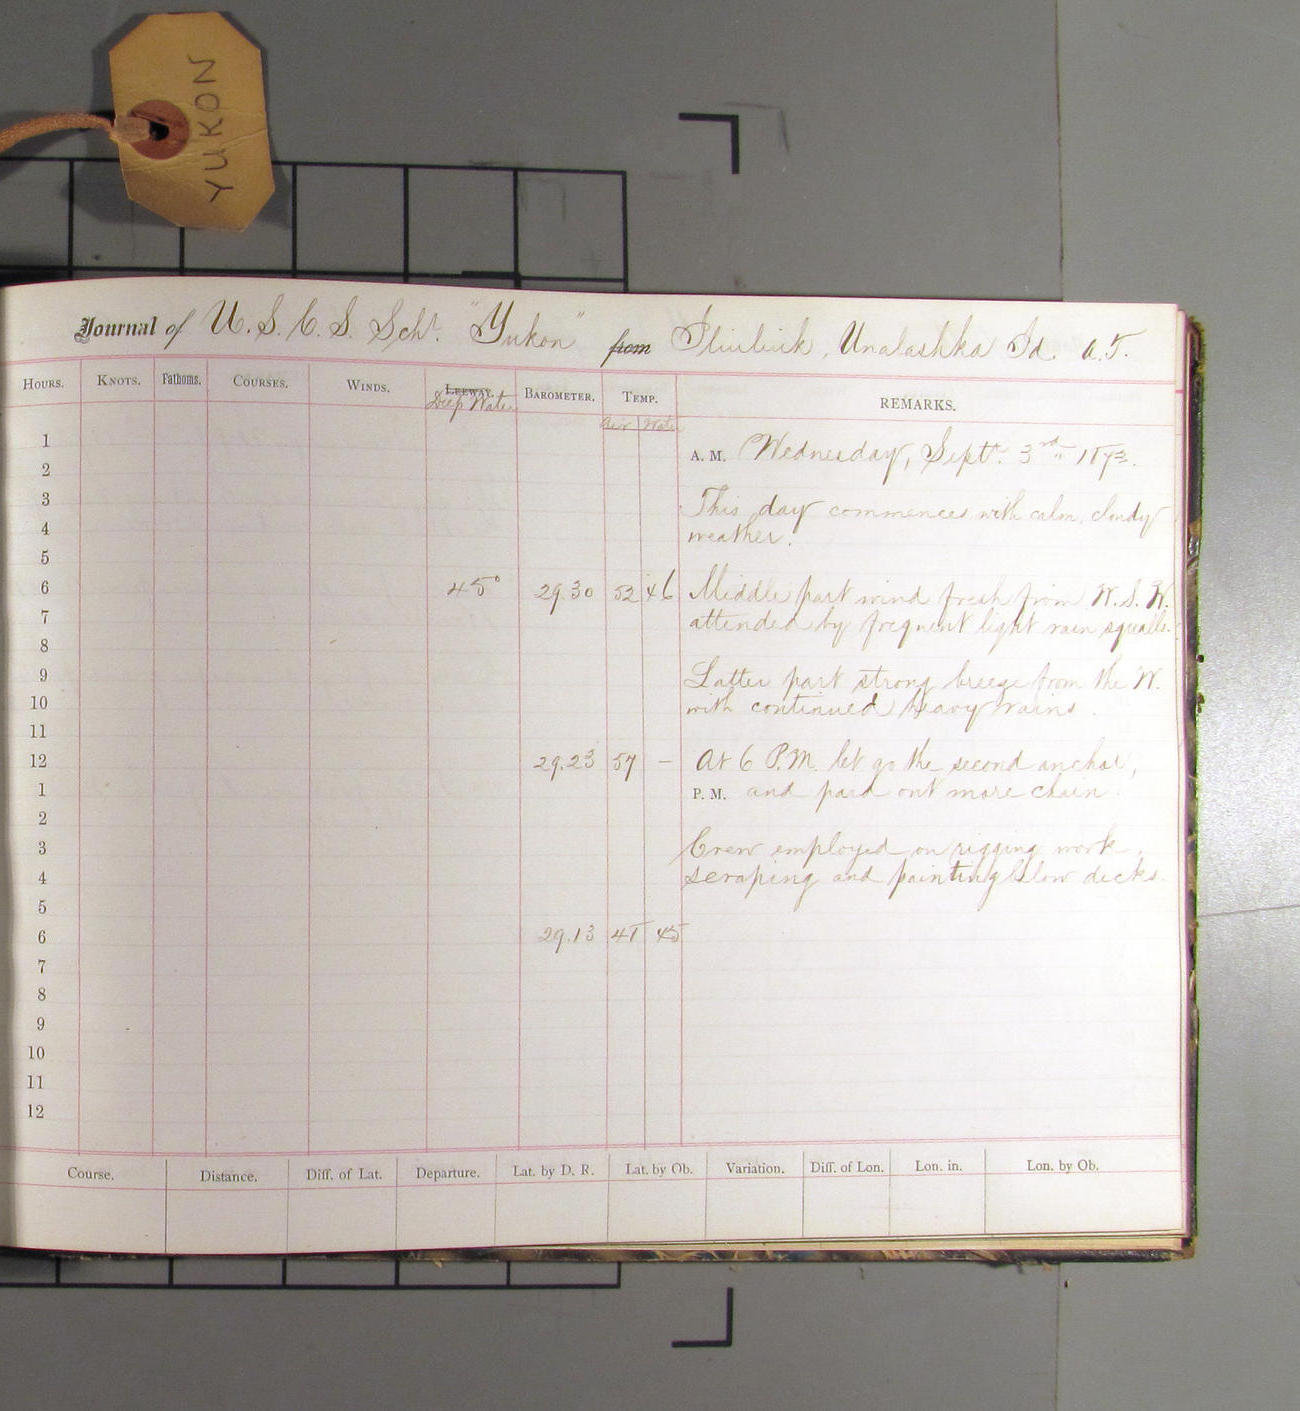 YUKON
Journal of U. S. C. S. Schr. "Yukon" from Iliuliuk, Unalashka Id. A. T.
HOURS. KNOTS. Fathoms. COURSES. WINDS. LEEWAY. BAROMETER. TEMP. REMARKS.
Deep Water
Air Water
1
A. M. Wednesday, Septr. 3rd 1873.
2
3 This day commences with calm, cloudy
4 weather.
5
6 45° 29.30 52 46 Middle part wind fresh from W. S. W.
7 attended by frequent light rain squalls.
8
9 Latter part strong breeze from the W.
10 with continued heavy rains.
11
12 29.23 57 – At 6 P.M. let go the second anchor,
1 P. M. and paid out more chain.
2
3 Crew employed on rigging work,
4 scraping and painting below decks.
5
6 29.13 45
7
8
9
10
11
12
Course. Distance. Diff. of Lat. Departure. Lat. by D. R. Lat. by Ob. Variation. Diff. of Lon. Lon. in. Lon. by Ob.